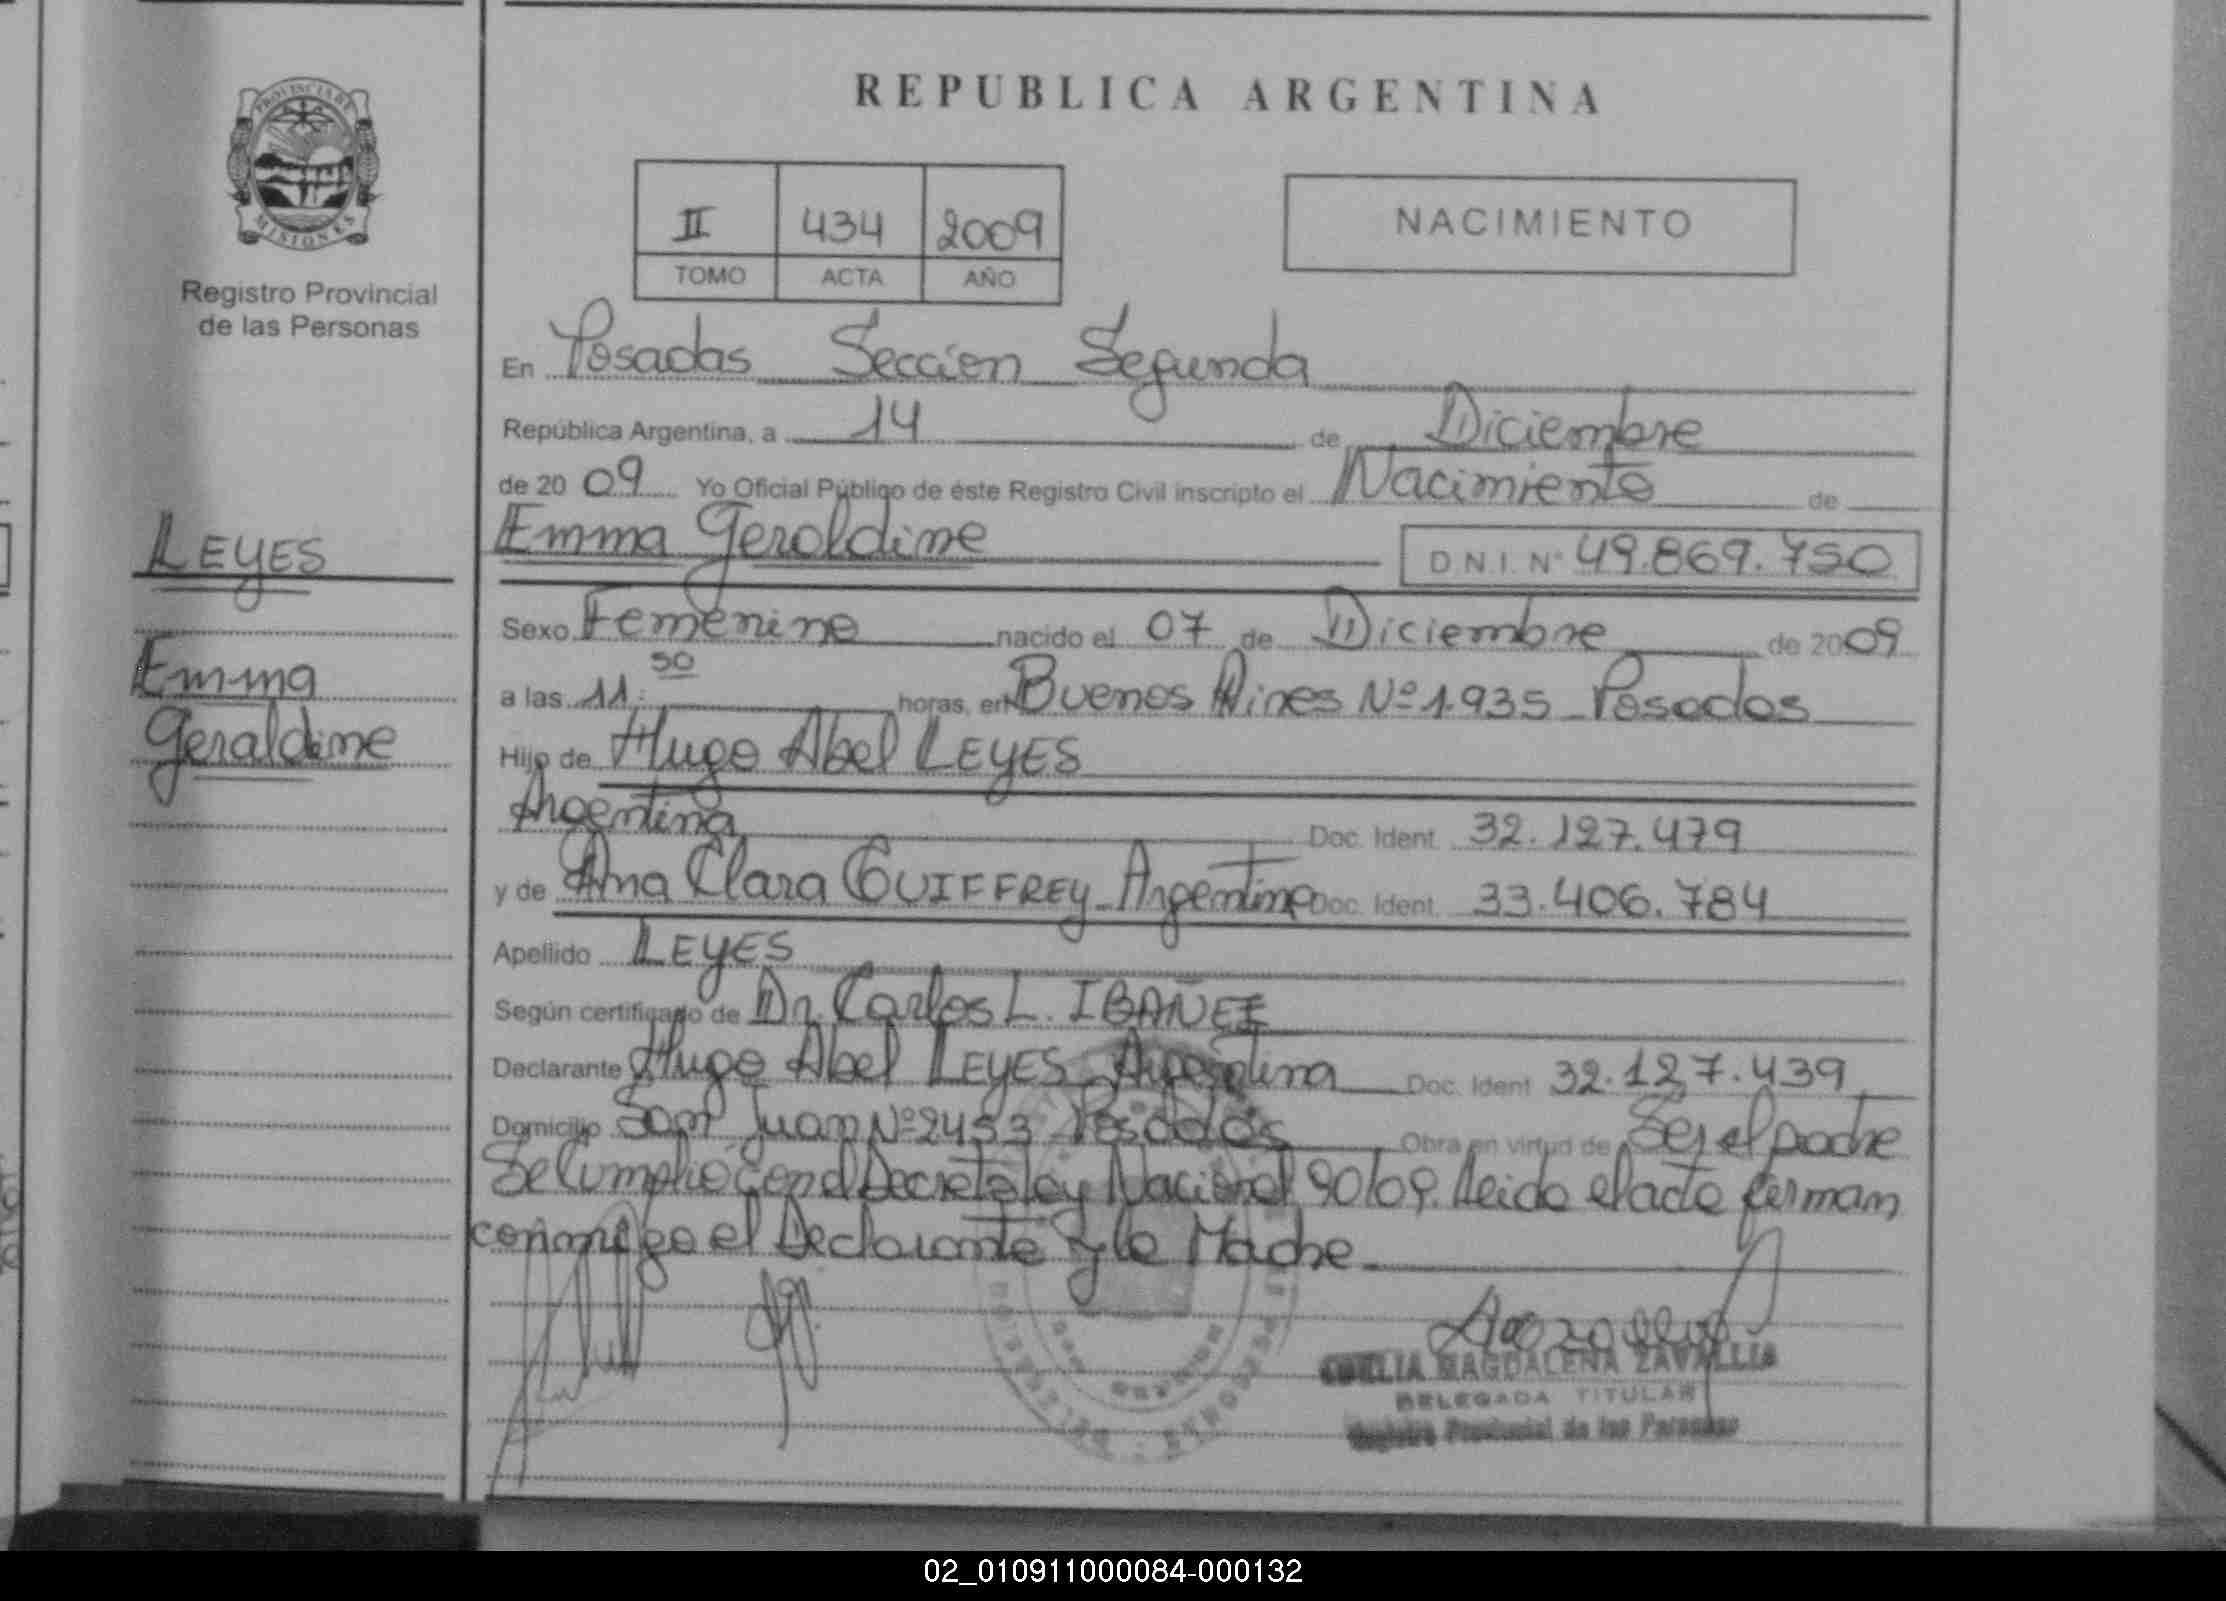 PROVINCIA DE
MISIONES
Registro Provincial
de las Personas
LEYES
Emma
Geraldine
REPUBLICA ARGENTINA
II 434 2009
TOMO ACTA AÑO
NACIMIENTO
En Posadas Sección Segunda
República Argentina, a 14 de Diciembre
de 2009 Yo Oficial Público de éste Registro Civil inscripto el Nacimiento de
Emma Geraldine D.N.I. Nº 49.869.750
Sexo Femenino nacido el 07 de Diciembre de 2009
a las 11:50 horas, en Buenos Aires Nº 1.935 Posadas
Hijo de Hugo Abel LEYES
Argentina Doc. Ident. 32.127.479
y de Ana Clara GUIFFREY Argentina Doc. Ident. 33.406.784
Apellido LEYES
Según certificado de Dr. Carlos L. IBAÑEZ
Declarante Hugo Abel LEYES Argentina Doc. Ident 32.127.439
Domicilio San Juan Nº 2453 Posadas Obra en virtud de Ser el padre
Se Cumplio con el Decreto Ley Nacional 90/09. Leido el acta firman
conmigo el Declarante y la Madre
MAGDALENA ZAVALLIA
DELEGADA TITULAR
Registro Provincial de las Personas
02_010911000084-000132